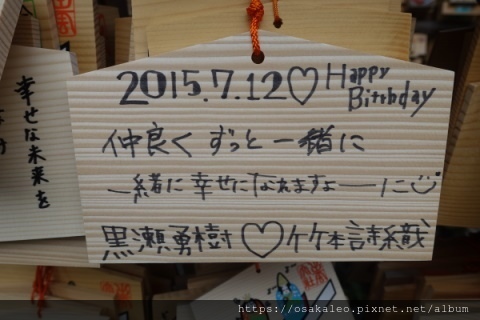 2015.7.12♡Happy
Birthday
仲良くずっと一緒に
一緒に幸せになれますよーーに
黒瀬勇樹♡竹本詩織
幸せな未来を
https://osakaleo.pixnet.net/album